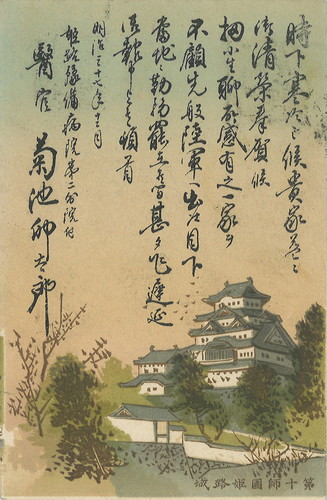 時下寒冷之候貴家益々
御清榮奉賀候
扨小生聊所感有之一家ヲ
不顧先般陸軍ヘ出仕目下
當地勤務罷在 甚タ乍遲延
御報申上候 頓首
明治三十七年十二月
姫路豫備病院第二分院付
醫官 菊池卯太郎
第十師團姫路城